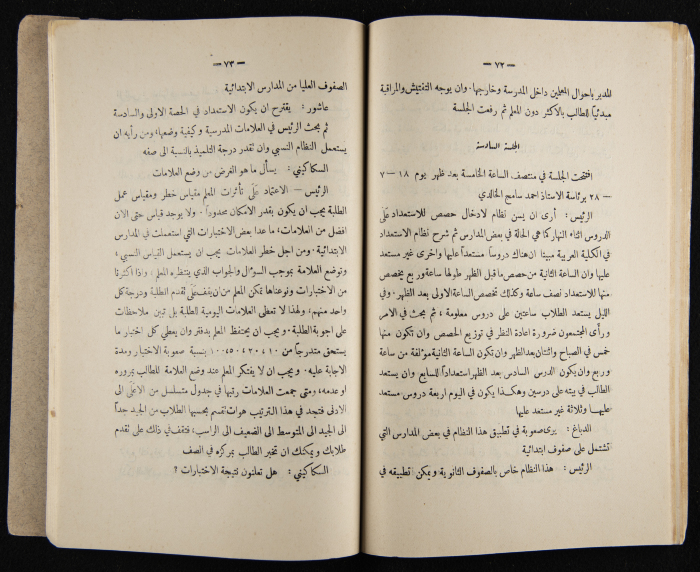 — ٧٢ —
المدير باحوال المعلمين داخل المدرسة وخارجها. وان يوجه التفتيش والمراقبة
مبدئيًا للطالب بالاكثر دون المعلم ثم رفعت الجلسة
الجلسة السادسة
افتتحت الجلسة في منتصف الساعة الخامسة بعد ظهر يوم ١٨ – ٧
– ٢٨ برئاسة الاستاذ احمد سامح الخالدي
الرئيس: أرى ان يسن نظام لادخال حصص للاستعداد عَلَى
الدروس اثناء النهار كما هي الحالة في بعض المدارس ثم شرح نظام الاستعداد
في الكلية العربية مبينا ان هناك دروساً مستعداً عليها واخرى غير مستعد
عليها وان الساعة الثانية من حصص ما قبل الظهر طولها ساعة وربع يخصص
منها للاستعداد نصف ساعة وكذلك تخصص الساعة الاولى بعد الظهر، وفي
الليل يستعد الطلاب ساعتين على دروس معلومة، ثم بحث في الامر
ورأى المجتمعون ضرورة اعادة النظر في توزيع الحصص وان تكون منها
خمس في الصباح واثنتان بعد الظهر وان تكون الساعة الثانية مؤلفة من ساعة
وربع وان يكون الدرس السادس بعد الظهر استعداداً للسابع وان يستعد
الطالب في بيته على درسين وهكذا يكون في اليوم اربعة دروس مستعد
عليها وثلاثة غير مستعد عليها
الدباغ: يرى صعوبة في تطبيق هذا النظام في بعض المدارس التي
تشتمل على صفوف ابتدائية
الرئيس: هذا النظام خاص بالصفوف الثانوية ويمكن تطبيقه في
— ٧٣ —
الصفوف العليا من المدارس الابتدائية
عاشور: يقترح ان يكون الاستعداد في الحصة الاولى والسادسة
ثم بحث الرئيس في العلامات المدرسية وكيفية وضعها، ومن رأيه ان
يستعمل النظام النسبي وان تقدر درجة التلميذ بالنسبة الى صفه
السكاكيني: يسأل ما هو الغرض من وضع العلامات
الرئيس – الاعتماد عَلَى تأثرات المعلم مقياس خطر ومقياس عمل
الطلبة يجب ان يكون بقدر الامكان محدوداً – ولا يوجد قياس حتى الان
افضل من العلامات، ما عدا بعض الاختبارات التي استعملت في المدارس
الابتدائية. ومن اجل خطر العلامات يجب ان يستعمل القياس النسبي،
وتوضع العلامة بموجب السؤال والجواب الذي ينتظره المعلم، واذا اكثرنا
من الاختبارات ونوعناها تمكن المعلم من ان يقف عَلَى تقدم الطلبة ودرجة كل
واحد منهم، ولهذا لا تعطى العلامات اليومية للطلبة بل تبين ملاحظات
على اجوبة الطلبة. ويجب ان يحتفظ المعلم بدفتر وان يعطي كل اختبار ما
يستحق متدرجاً من ١٠، ٢٠، ٤٠، ٥٠، ١٠٠ بنسبة صعوبة الاختبار ومدة
الاجابة عليه. ويجب ان لا يفتكر المعلم عند وضع العلامة للطالب بمروره
او عدمه، ومتى جمعت العلامات رتبها في جدول متسلسل من الأعلى الى
الادنى فتجد في هذا الترتيب هوات تقسم بحسبها الطلاب من الجيد جداً
الى الجيد الى المتوسط الى الضعيف الى الراسب، فتقف في ذلك على تقدم
طلابك ويمكنك ان تخبر الطالب بمركزه في الصف
السكاكيني: هل تعلنون نتيجة الاختبارات؟